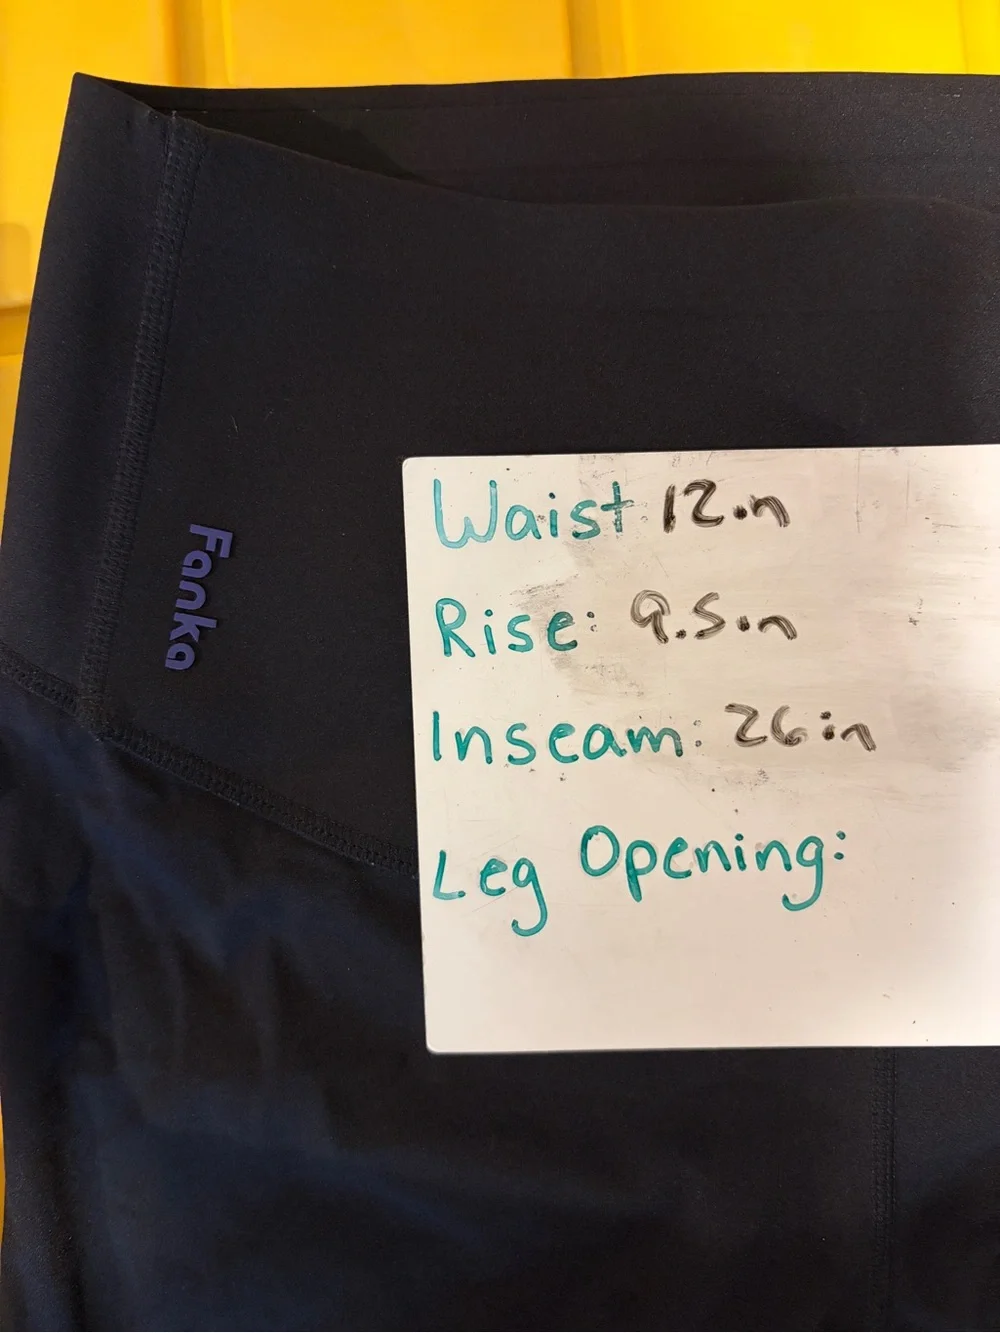 Fanka
Waist 12in
Rise: 9.5in
Inseam: 26in
Leg Opening: